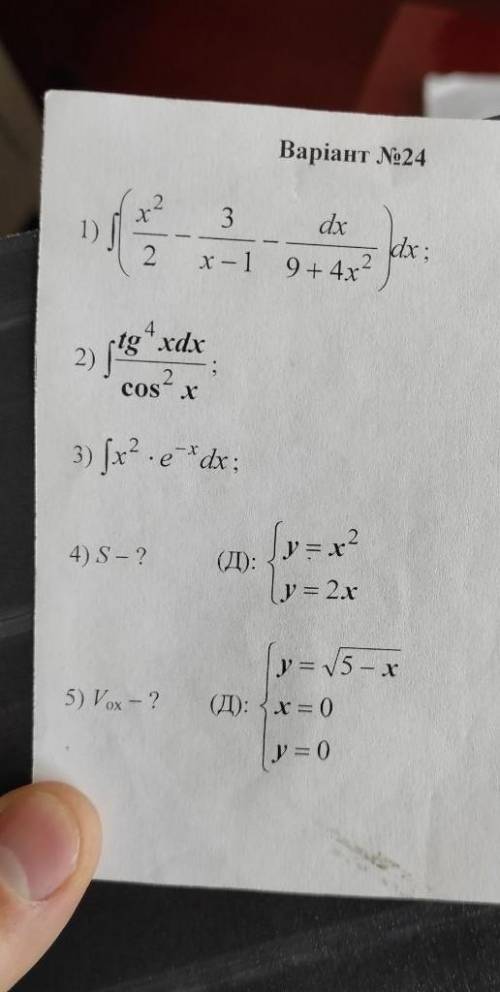 Варіант №24
1) ∫(x²/2 − 3/(x − 1) − dx/(9 + 4x²))dx;
2) ∫tg⁴xdx/cos²x;
3) ∫x² · e⁻ˣdx;
4) S – ? (Д): { y = x²
y = 2x
5) Vох – ? (Д): { y = √(5 − x)
x = 0
y = 0